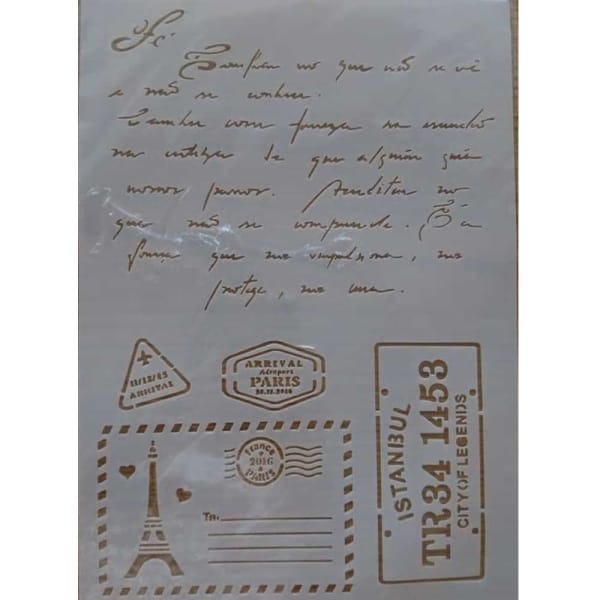 Fé
É confiar no que não se vê
e não se conhece.
com firmeza na escuridão
na certeza de que alguém guia
nossos passos. Acreditar no
que não se compreende. É a
força que me impulsiona, me
protege, me ama.
11/12/15
ARRIVAL
ARRIVAL
Aéroport
PARIS
france
2016
PARIS
To:
ISTANBUL
TR34 1453
CITY OF LEGENDS